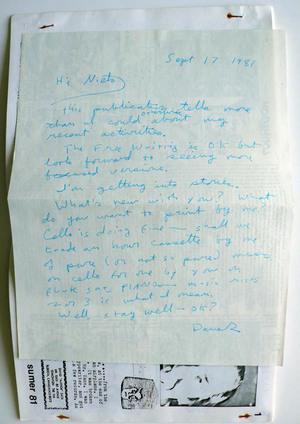 Sept 17 1981
Hi Nieto
This publication tells more
than I could about my
recent activities.
The Free Writing is OK but I
look forward to seeing more
focused versions.
I'm getting into stories.
What's new with you? What
do you want to print by me?
Cello is doing fine — shall we
trade an hour cassette by me
of pure (or not so pure) music
on cello for one by you on
is what I mean.
Well stay well — OK?
sumer 81